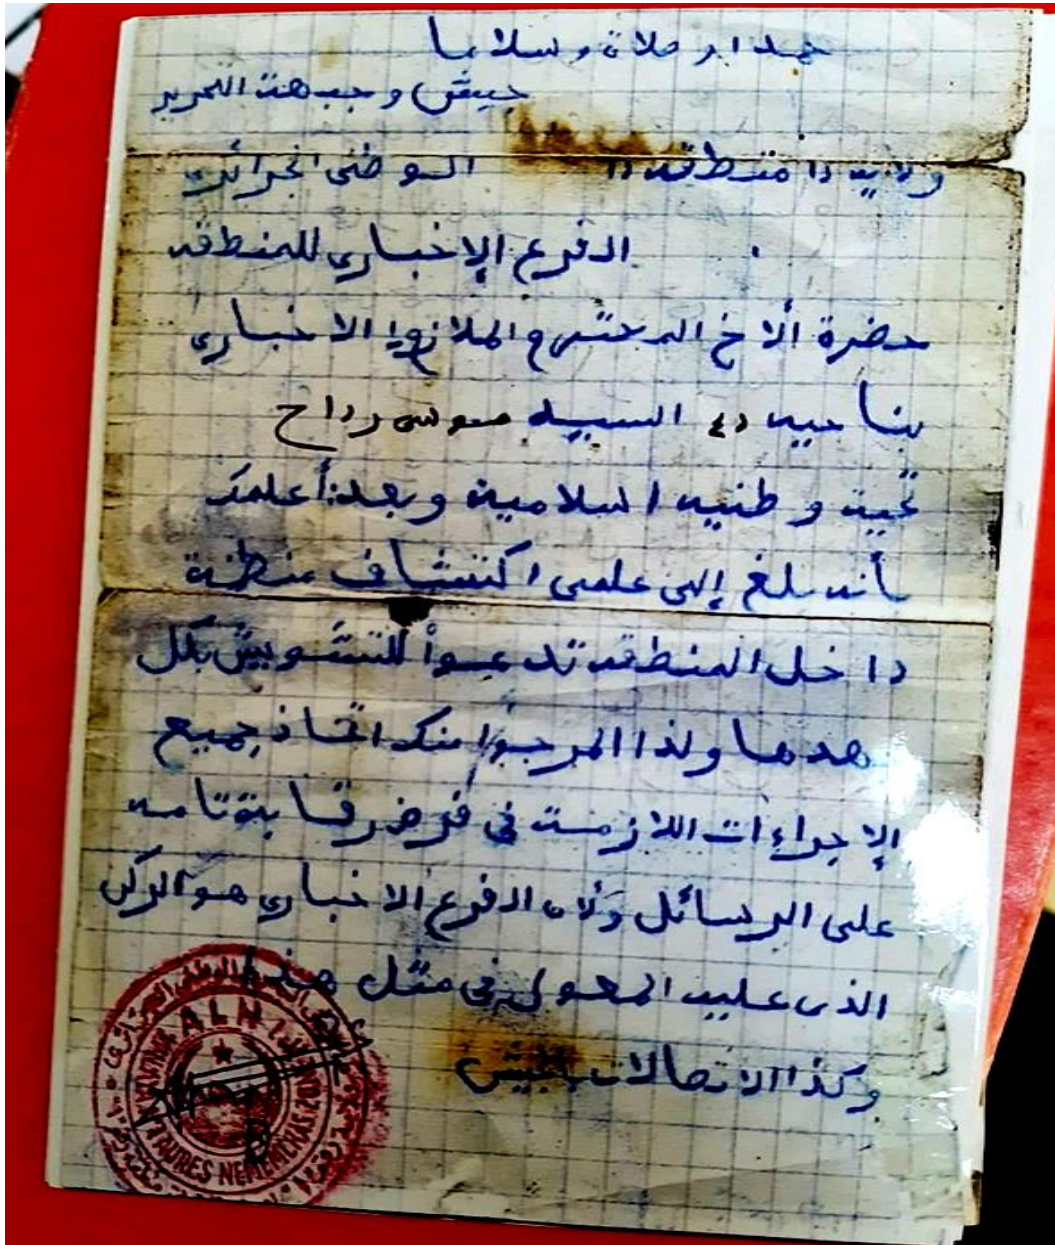 حمدا و صلاة و سلاما
جيش و جبهة التحرير
ولاية 1 منطقة الوطني الجزائري
الفرع الإخباري للمنطقة
حضرة ألاخ المحترم الملازم الاخباري
بناحية السيد موسى رداح
تحية وطنيه اسلامية وبعد: أعلمك
بأنه بلغ إلى علمي اكتشاف منظمة
داخل المنطقه تدعوا للتشويش بكل
هدها ولذا المرجوا منك اتخاذ جميع
الإجراءات اللازمة في فرض رقابة تامه
على الرسائل ولان الفرع الاخباري هو الركن
الذى عليه المعول في مثل هذا
وكذا الاتصالات بالجيش
ALN
AURES NEMEMCHAS